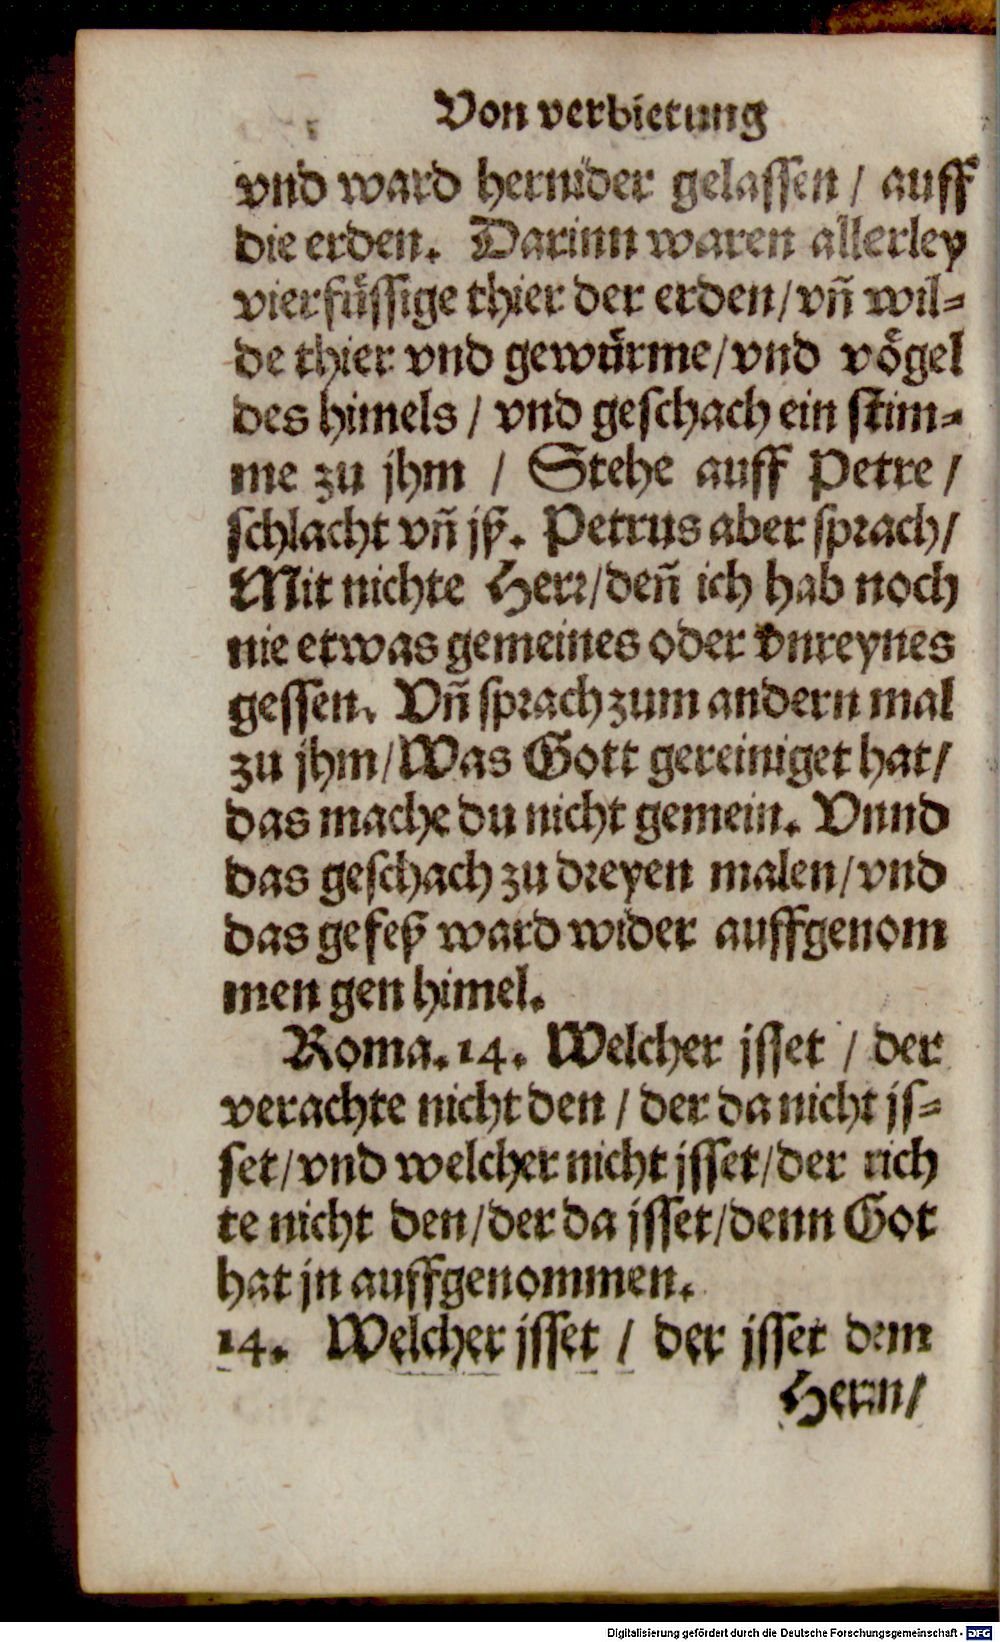 Von verbietung
vnd ward hernider gelassen / auff
die erden. Darinn waren allerley
vierfüssige thier der erden/vñ wil⸗
de thier vnd gewürme/vnd vögel
des himels / vnd geschach ein stim⸗
me zu jhm / Stehe auff Petre /
schlacht vñ jß. Petrus aber sprach/
Mit nichte Herr/deñ ich hab noch
nie etwas gemeines oder vnreynes
gessen. Vñ sprach zum andern mal
zu jhm/Was Gott gereiniget hat/
das mache du nicht gemein. Vnnd
das geschach zu dreyen malen/vnd
das gefeß ward wider auffgenom
men gen himel.
Roma. 14. Welcher jsset / der
verachte nicht den / der da nicht js⸗
set/vnd welcher nicht jsset/der rich
te nicht den/der da jsset/denn Got
hat jn auffgenommen.
14. Welcher jsset / der jsset dem
Herrn/
Digitalisierung gefördert durch die Deutsche Forschungsgemeinschaft - DFG